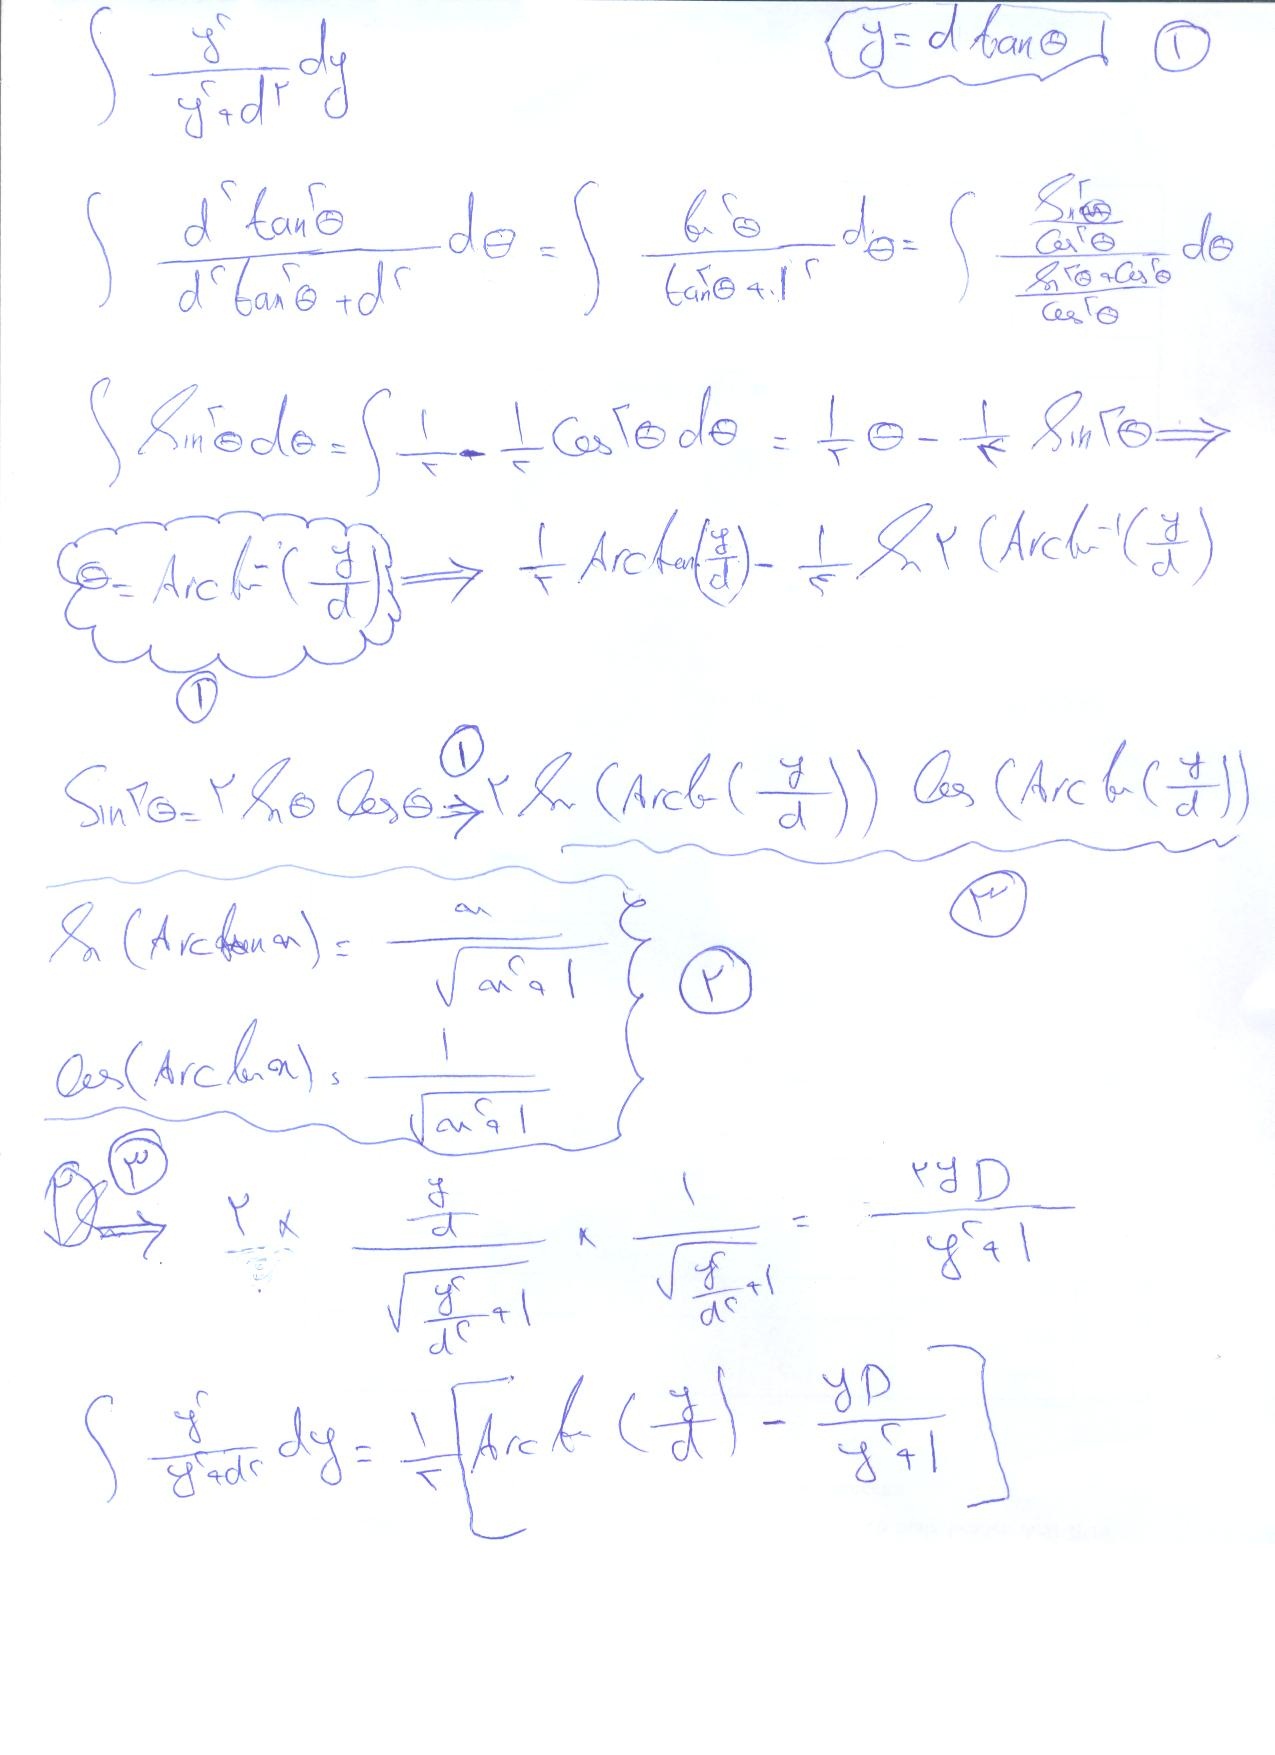 ∫ y²/(y²+d²) dy    y = d tanθ    ①
∫ d² tan²θ/(d² tan²θ + d²) dθ = ∫ tan²θ/(tan²θ + 1²) dθ = ∫ (Sin²θ/Cos²θ)/((Sin²θ + Cos²θ)/Cos²θ) dθ
∫ Sin²θ dθ = ∫ 1/۲ - 1/۲ Cos۲θ dθ = 1/۲ θ - 1/۴ Sin۲θ ⟹
θ = Arctan⁻¹(y/d) ⟹ 1/۲ Arctan(y/d) - 1/۴ Sin ۲ (Arctan⁻¹(y/d)
①
Sin۲θ = ۲ Sinθ Cosθ ⟹ ① ۲ Sin (Arctan(y/d)) Cos (Arctan(y/d))
③
Sin (Arctan x) = x/√(x²+1)
②
Cos (Arctan x) = 1/√(x²+1)
② ③ ⟹ ۲ × (y/d)/√(y²/d² + 1) × 1/√(y²/d² + 1) = ۲yD/(y²+1)
∫ y²/(y²+d²) dy = 1/۲ [Arctan (y/d) - yD/(y²+1)]